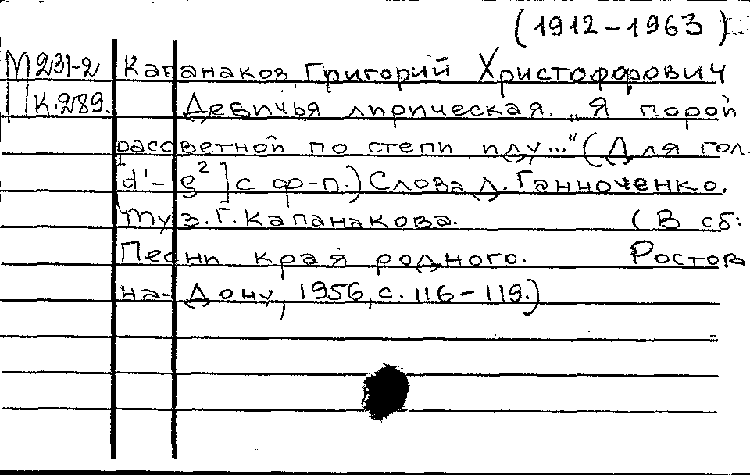 (1912-1963)
М231-2 Капанаков, Григорий Христофорович
К.289. Девичья лирическая. „Я порой
рассветной по степи иду..." (Для гол.
[d'-g²] с ф-п.) Слова Д. Ганноченко.
Муз. Г. Капанакова. (В сб:
Песни края родного. Ростов
на-Дону, 1956, с. 116-119.)